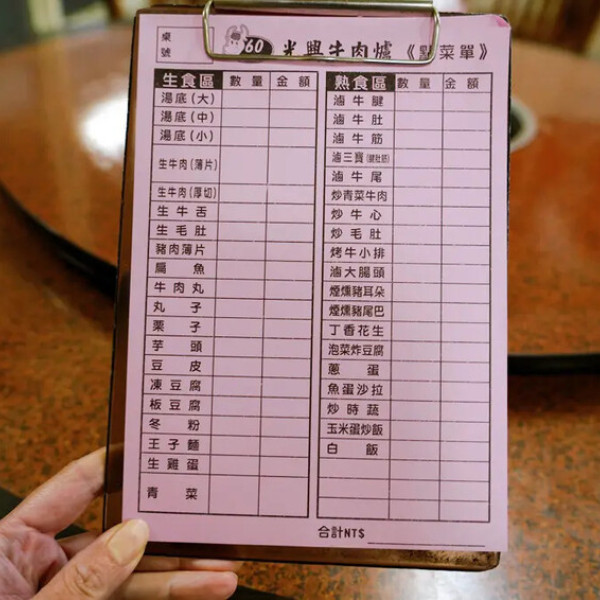 桌號
60 光興牛肉爐《點菜單》
生食區 數量 金額
湯底(大)
湯底(中)
湯底(小)
生牛肉(薄片)
生牛肉(厚切)
生牛舌
生毛肚
豬肉薄片
扁魚
牛肉丸
丸子
栗子
芋頭
豆皮
凍豆腐
板豆腐
冬粉
王子麵
生雞蛋
青菜
熟食區 數量 金額
滷牛腱
滷牛肚
滷牛筋
滷三寶(腱肚筋)
滷牛尾
炒青菜牛肉
炒牛心
炒毛肚
烤牛小排
滷大腸頭
煙燻豬耳朵
煙燻豬尾巴
丁香花生
泡菜炸豆腐
蔥蛋
魚蛋沙拉
炒時蔬
玉米蛋炒飯
白飯
合計NT$